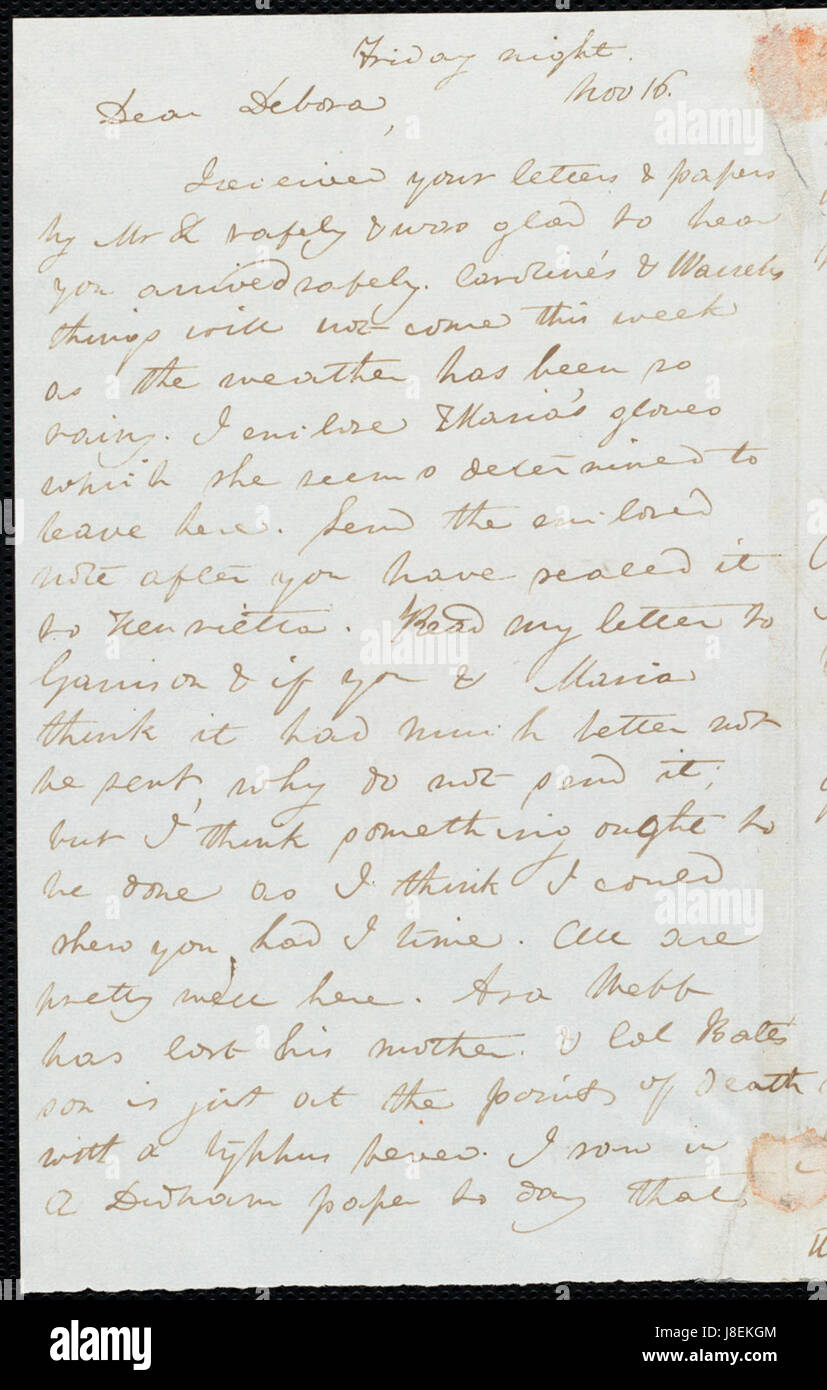 Friday night.
Nov 16.
Dear Debora,
I received your letters & papers
by Mr safely & was glad to hear
you arrived safely. Caroline's &
things will not come this week
as the weather has been so
rainy. I enclose Maria's gloves
which she seems determined to
leave here. Send the enclosed
note after you have sealed it
to Henrietta. Read my letter to
Garrison & if you & Maria
think it had much better not
be sent, why do not send it;
but I think something ought to
be done as I think I could
shew you, had I time. All are
pretty well here. Asa Webb
has lost his mother. & Col Bates'
son is just at the point of death
with a typhus fever. I saw in
a Dedham paper to day that
alamy
Image ID: J8EKGM
www.alamy.com